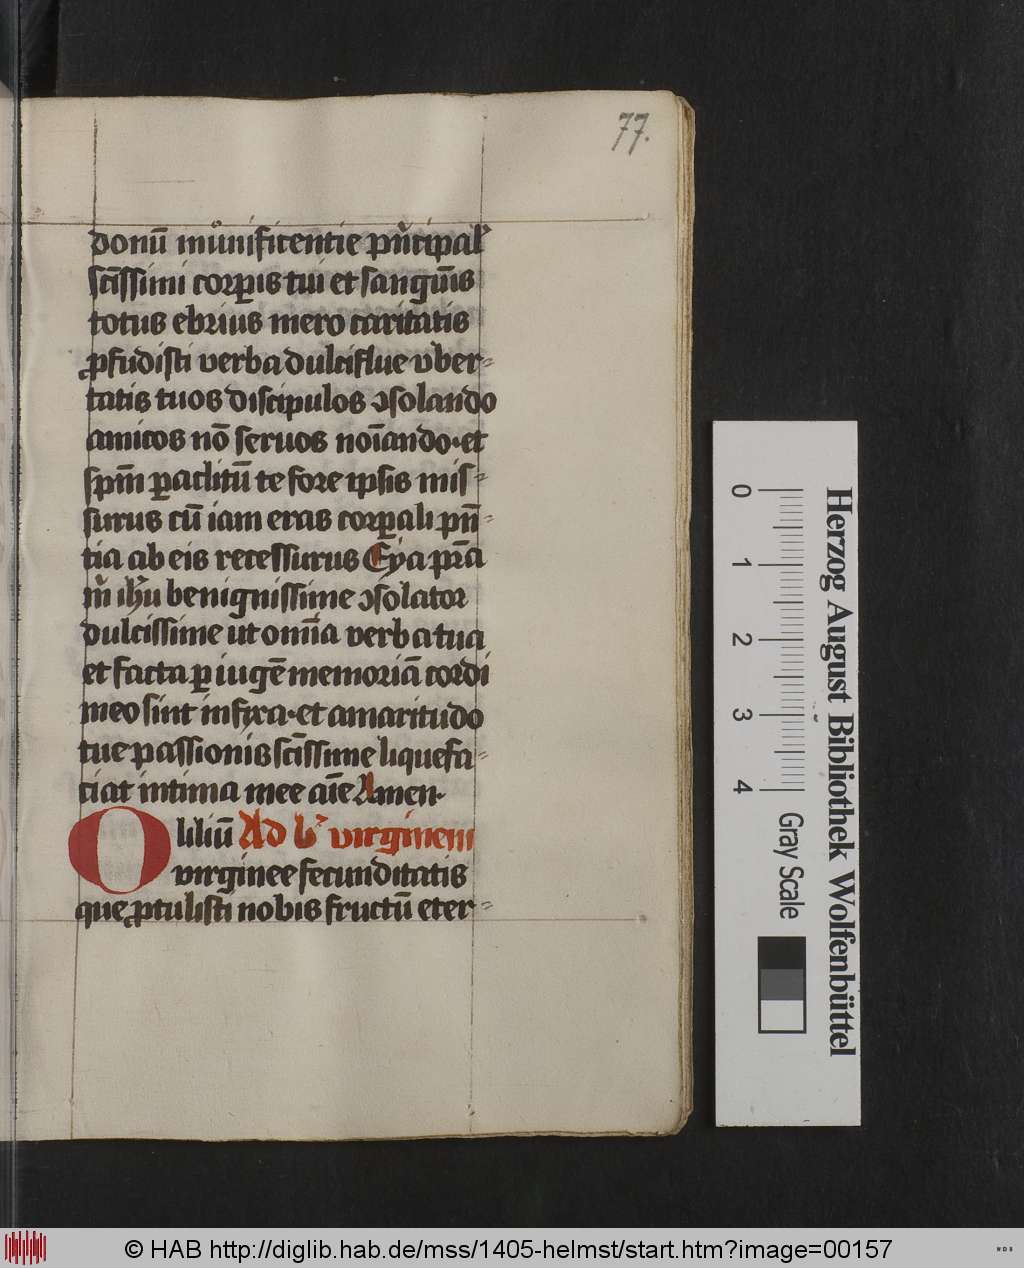 77.
donū mūnificentie pn̄cipal᷑
scīssimi corp̱is tui et sangūis
totus ebrius mero caritatis
ꝓfudisti verba dulciflue vber-
tatis tuos discipulos ↄsolando
amicos nō seruos noīando·et
spm̄ ꝑaclitū te fore ipsis mis-
surus cū iam eras corꝑali pn̄-
tia ab eis recessurus Eya pr̄a
m̄ ihū benignissime ↄsolator
dulcissime ut om̄ia verba tua
et facta ꝑ iugē memoriā cordi
meo sint infixa·et amaritudo
tue passionis scīssime liquefa-
ciat intima mee aīe Amen·
O liliū Ad b᷑ virginem
virginee fecunditatis
que ꝓtulisti nobis fructū eter-
0 1 2 3 4
Herzog August Bibliothek Wolfenbüttel
Gray Scale
© HAB http://diglib.hab.de/mss/1405-helmst/start.htm?image=00157
WDB